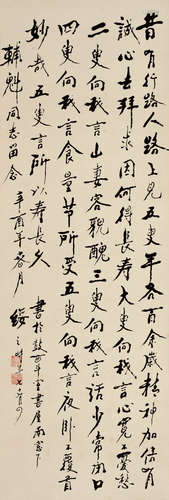 昔有行路人路上見五叟年各百余歲精神加倍有
誠心去拜求因何得長壽大叟向我言心寬不憂愁
二叟向我言山妻容貌醜三叟向我言話少常閉口
四叟向我言食量节所受五叟向我言夜卧不覆首
妙哉五叟言所以壽長久
輔魁同志留念
辛酉年春月
書於
書屋南窓下